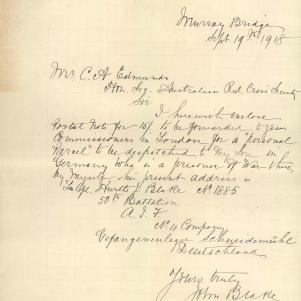 Murray Bridge
Sept 19th 1918
Mr C. A Edmunds
Hon. Sec. Australian Red Cross Society
Sir
I herewith enclose
Postal Note for 10/- to be forwarded to your
Commissioners in London for a "personal
Parcel" to be despatched to my Son in
Germany who is a prisoner of War there
his present address is
La Cpl. Blake No 1885
50th Battalion
A. I. F
No 4 Company
Gefangenenlager Schneidemühl
Deutschland
Yours truly
John Blake